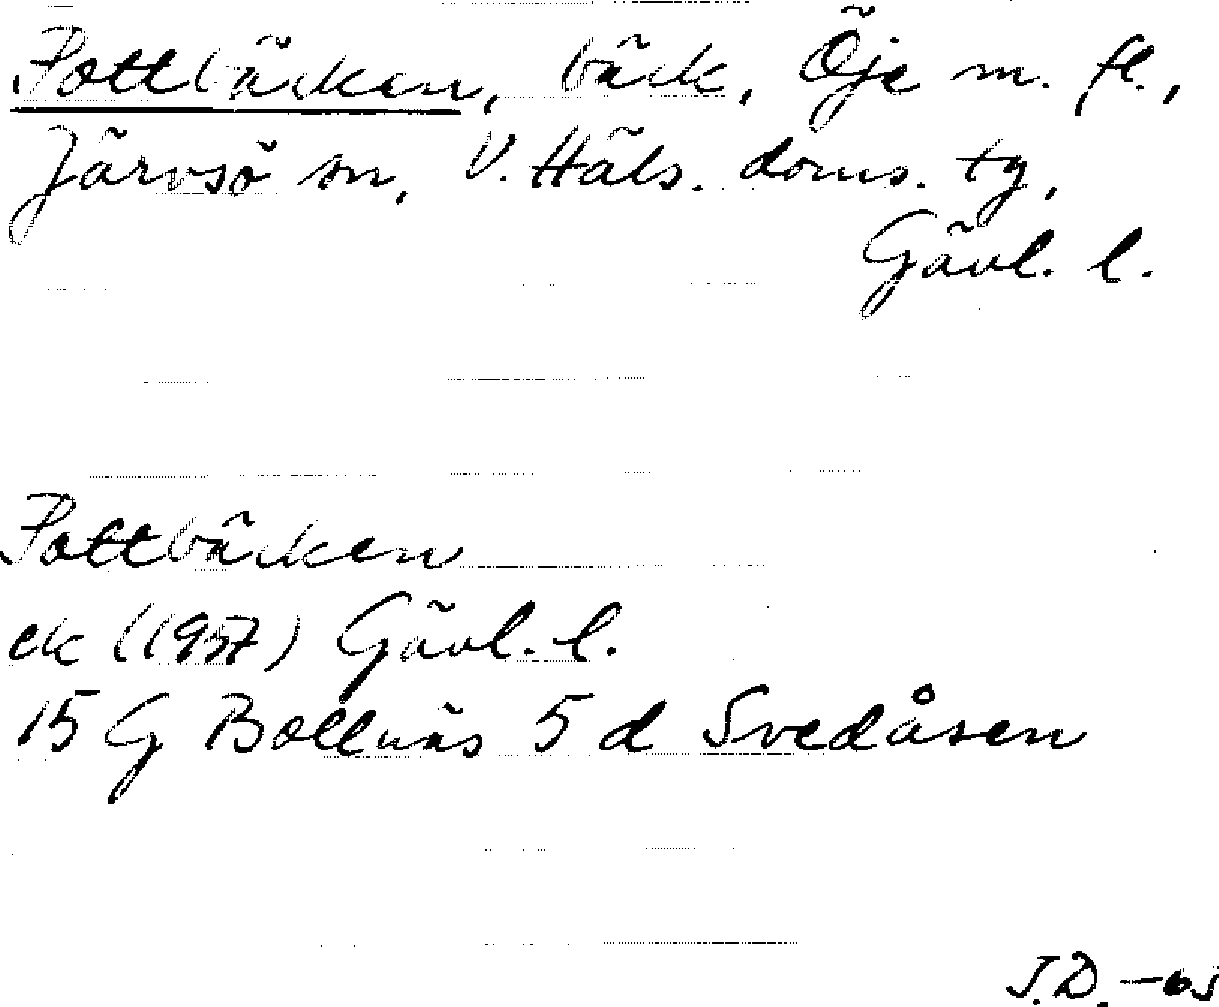 Pottbäcken, bäck, Öje m. fl.,
Järvsö sn, V. Häls. doms. tg,
Gävl. l.
Pottbäcken
ek (1957) Gävl. l.
15 G Bollnäs 5 d Svedåsen
J.D. -65